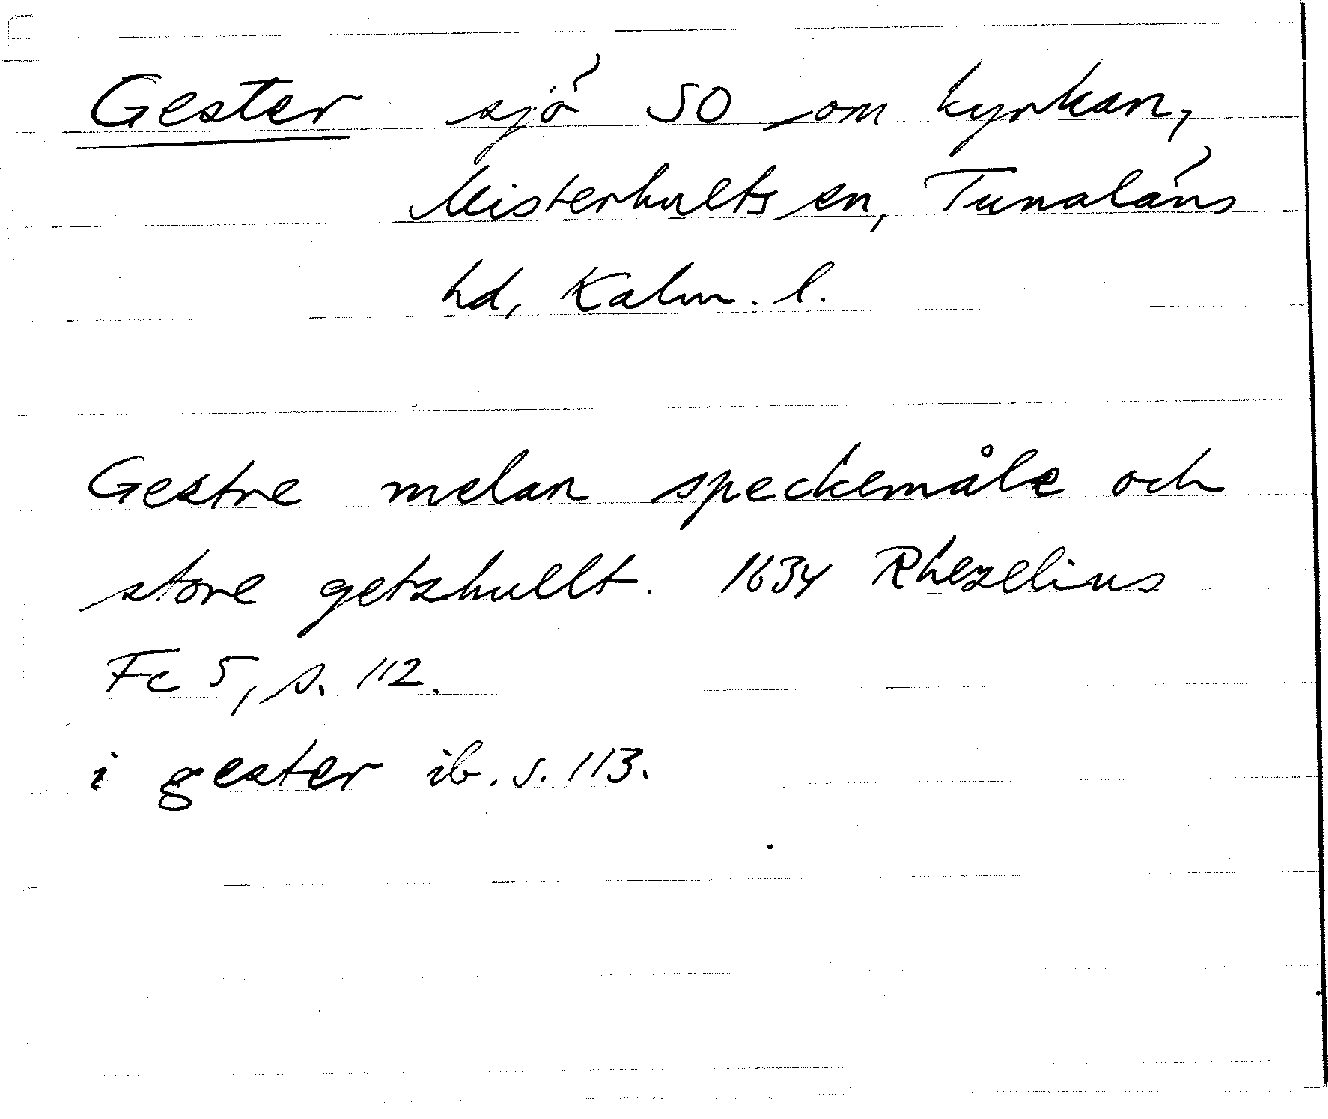 Gester sjö SO om kyrkan,
Misterhults sn, Tunaläns
hd, Kalm. l.
Gestre melan speckemåle och
store getzhullt. 1634 Rhezelius
Fc 5, s. 112.
i gester ib. s. 113.